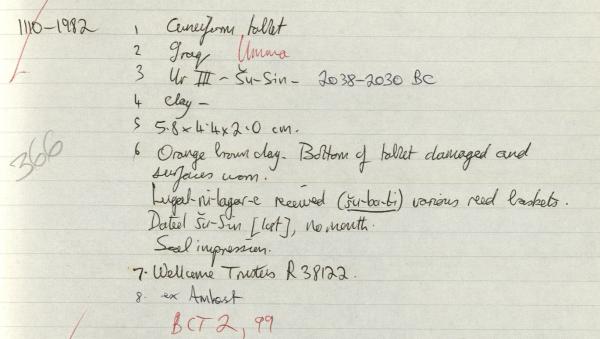 1110-1982 1 Cuneiform tablet
2 Iraq Umma
3 Ur III - Šu-Sin - 2038-2030 BC
4 clay -
5 5.8 x 4.4 x 2.0 cm.
366
6 Orange brown clay. Bottom of tablet damaged and
surfaces worn.
Lugal-ni-lagar-e received (šu-ba-ti) various reed baskets.
Dated Šu-Sin [lost], no month.
Seal impression.
7. Wellcome Trustees R 38122.
8. ex
BCT 2, 99